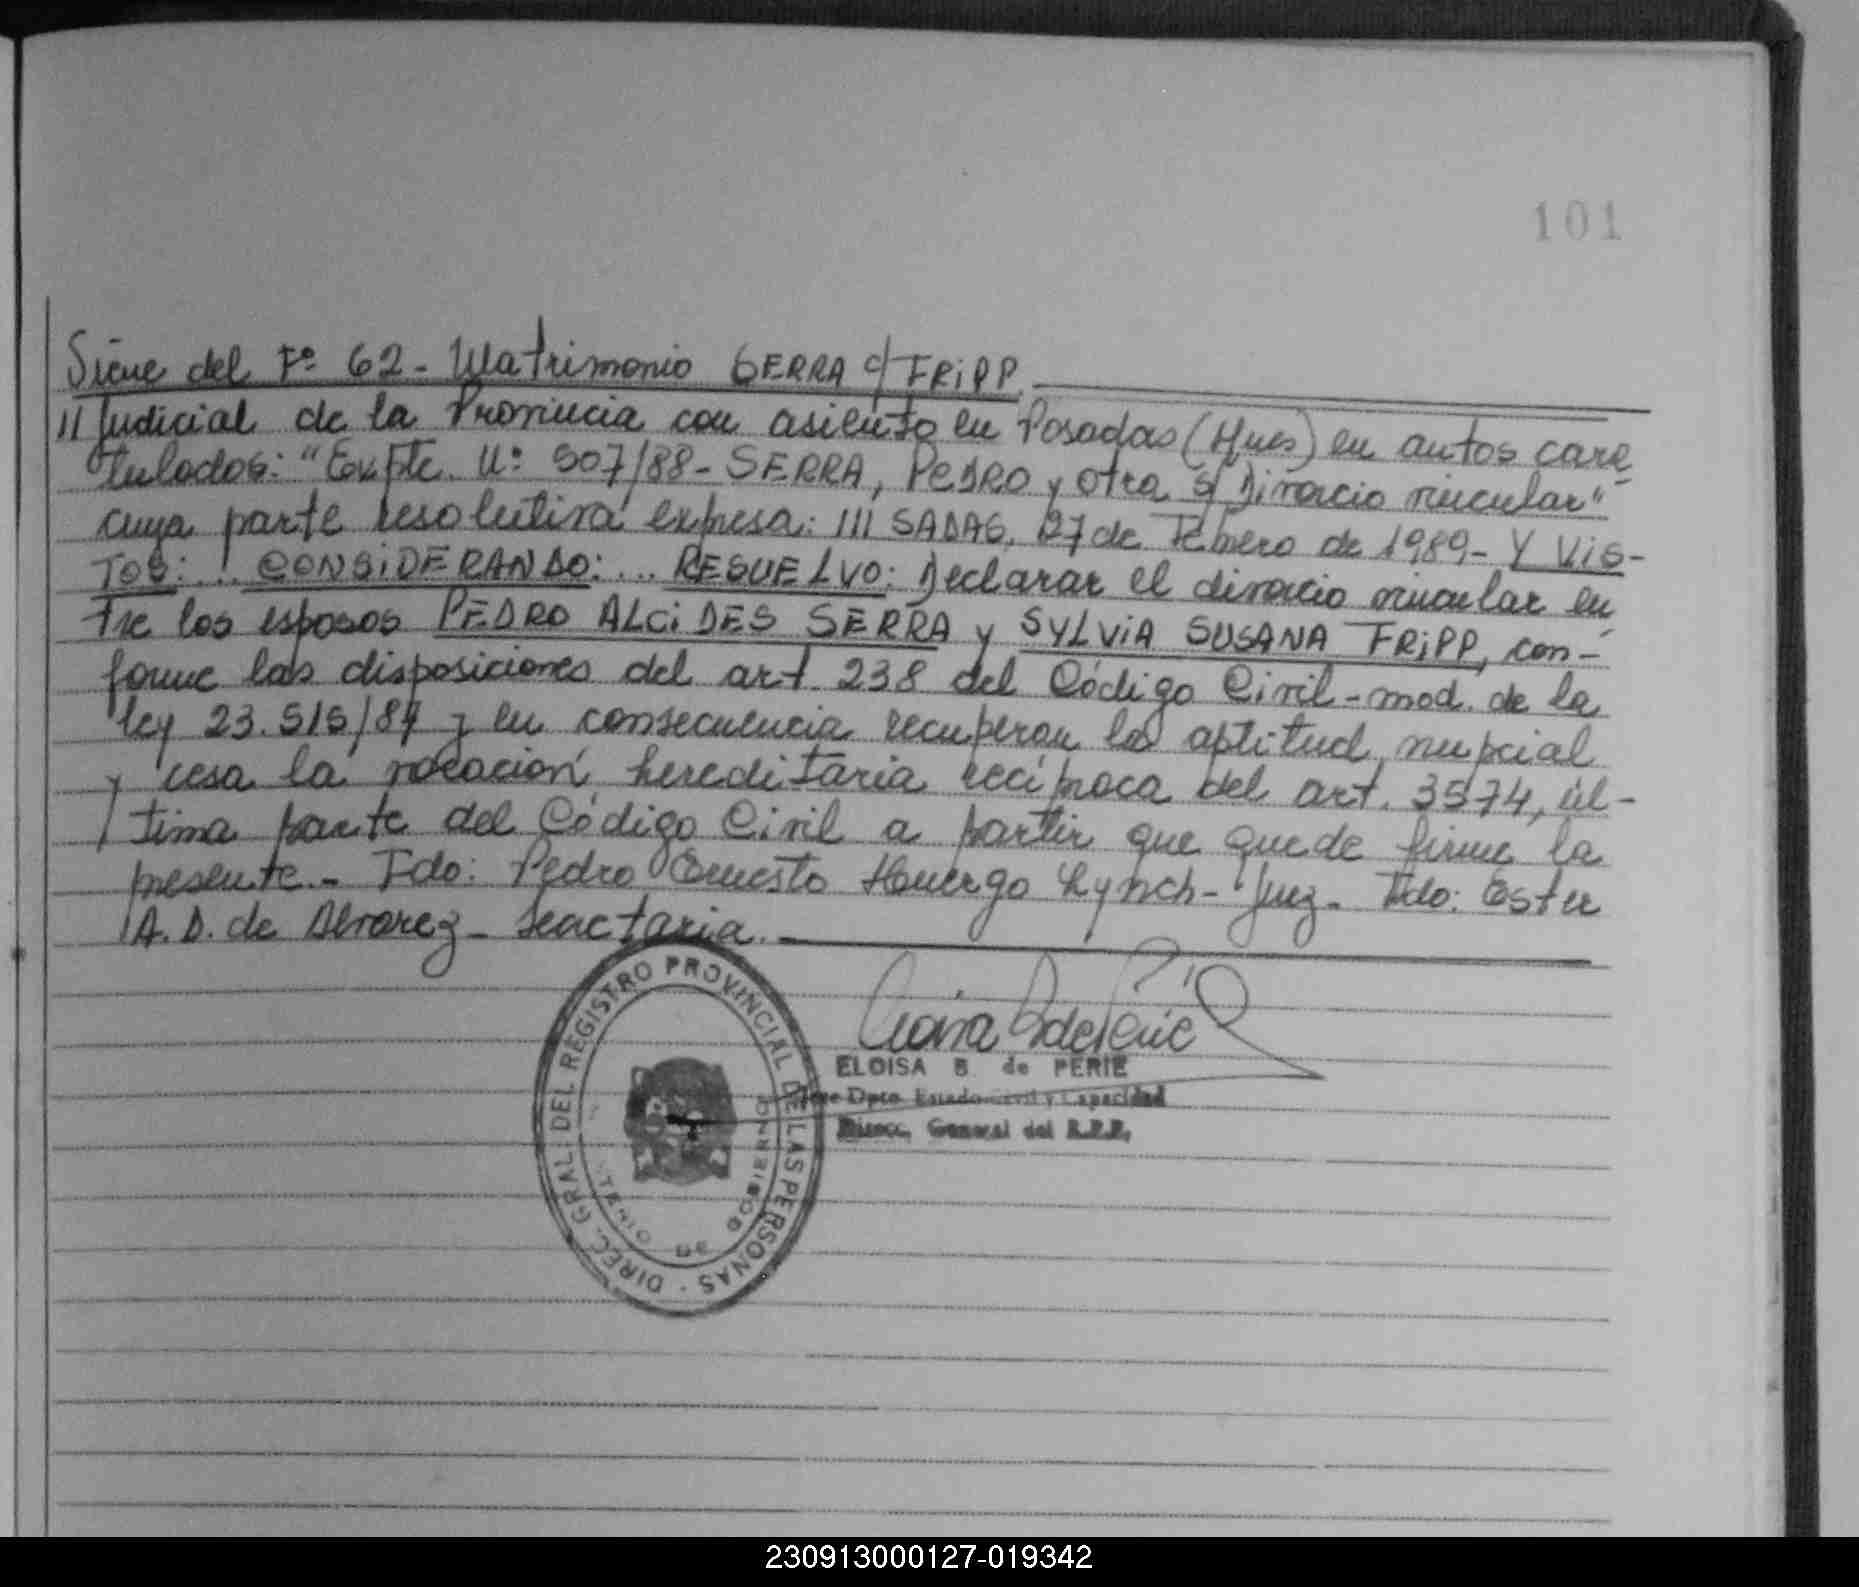 101
Siene del Fº 62 - Matrimonio SERRA c/ FRiPP
// Judicial de la Provincia con asiento en Posadas (Mnes) en autos cara
tulados: "Expte. Nº 907/88 - SERRA, PEDRO y otra s/ Divorcio vincular"
cuya parte resolutiva expresa: /// SADAS, 27 de Febrero de 1989 - Y VIS-
TOS: ... CONSiDERANDO: ... RESUELVO: Declarar el divorcio vincular en
tre los esposos PEDRO ALCiDES SERRA y SYLViA SUSANA FRiPP, con-
forme las disposiciones del art. 238 del Código Civil - mod. de la
ley 23.515/87 y en consecuencia recuperan la aptitud nupcial
y cesa la vocación hereditaria recíproca del art. 3574, úl-
tima parte del Código Civil a partir que quede firme la
presente. - Fdo: Pedro Ernesto Huergo Lynch - Juez - Fdo: Ester
A. D. de Alvarez - Secretaria.
DIREC. GRAL. DEL REGISTRO PROVINCIAL DE LAS PERSONAS
DE GOBIERNO
ELOISA B. de PERIE
Dpto. Estado Civil y Capacidad
Direcc. General del R.P.P.
230913000127-019342